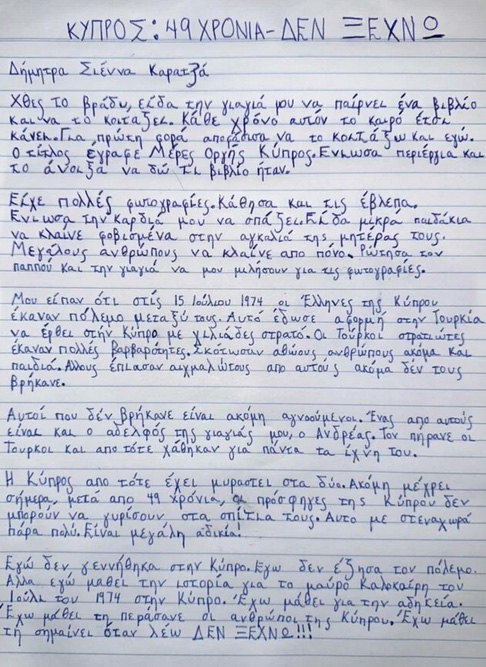 ΚΥΠΡΟΣ: 49 ΧΡΟΝΙΑ - ΔΕΝ ΞΕΧΝΩ
Δήμητρα Σιέννα Καρατζά
Χθες το βράδυ, είδα την γιαγιά μου να παίρνει ένα βιβλίο
και να το κοιταζει. Κάθε χρόνο αυτόν το καιρό έτσι
κάνει. Για πρώτη φορά αποφάσισα να το κοιτάξω και εγώ.
Ο τίτλος έγραφε Μέρες Οργής Κύπρος. Ενιωσα περιέργια και
το άνοιξα να δώ τι βιβλίο ήταν.
Είχε πολλές φωτογραφίες. Κάθησα και τις έβλεπα.
Ενιωσα την καρδιά μου να σπάζει. Είδα μικρα παιδάκια
να κλαίνε φοβισμένα στην αγκαλιά της μητέρας τους.
Μεγάλους ανθρώπους να κλαίνε απο πόνο. Ρώτησα τον
παππού και την γιαγιά να μου μιλήσουν για τις φωτογραφίες.
Μου είπαν ότι στίς 15 Ιούλιου 1974 οι Έλληνες της Κύπρου
έκαναν πόλεμο μεταξύ τους. Αυτό έδωσε αφορμή στην Τουρκία
να έρθει στήν Κύπρο με χιλιάδες στρατό. Οι Τουρκοι στρατιώτες
έκαναν πολλές βαρβαρότητες. Σκότωσαν αθώους ανθρώπους ακόμα και
παιδιά. Αλλους έπιασαν αιχμαλώτους απο αυτούς ακόμα δέν τους
βρήκανε.
Αυτοί που δέν βρήκανε είναι ακόμη αγνοούμενοι. Ένας απο αυτούς
είναι και ο αδελφός της γιαγιάς μου, ο Ανδρέας. Τον πήρανε οι
Τουρκοι και απο τότε χάθηκαν για πάντα τα ίχνη του.
Η Κύπρος απο τότε έχει μυραστει στα δύο. Ακόμη μέχρει
σήμερα, μετά απο 49 χρόνια, οι πρόσφηγες της Κύπρου δεν
μπορούν να γυρίσουν στα σπίτια τους. Αυτο με στεναχωρά
πάρα πολύ. Είναι μεγάλη αδικία!
Εγώ δεν γεννήθηκα στην Κύπρο. Εγω δεν έζησα τον πόλεμο.
Αλλα εγώ μαθει την ιστορία για το μαύρο Καλοκαίρη του
Ιούλι του 1974 στην Κύπρο. Έχω μάθει για την αδηκεία.
Έχω μάθει τη περάσανε οι ανθρωποι της Κύπρου. Έχω μάθει
τη σημαίνει όταν λέω ΔΕΝ ΞΕΧΝΩ!!!